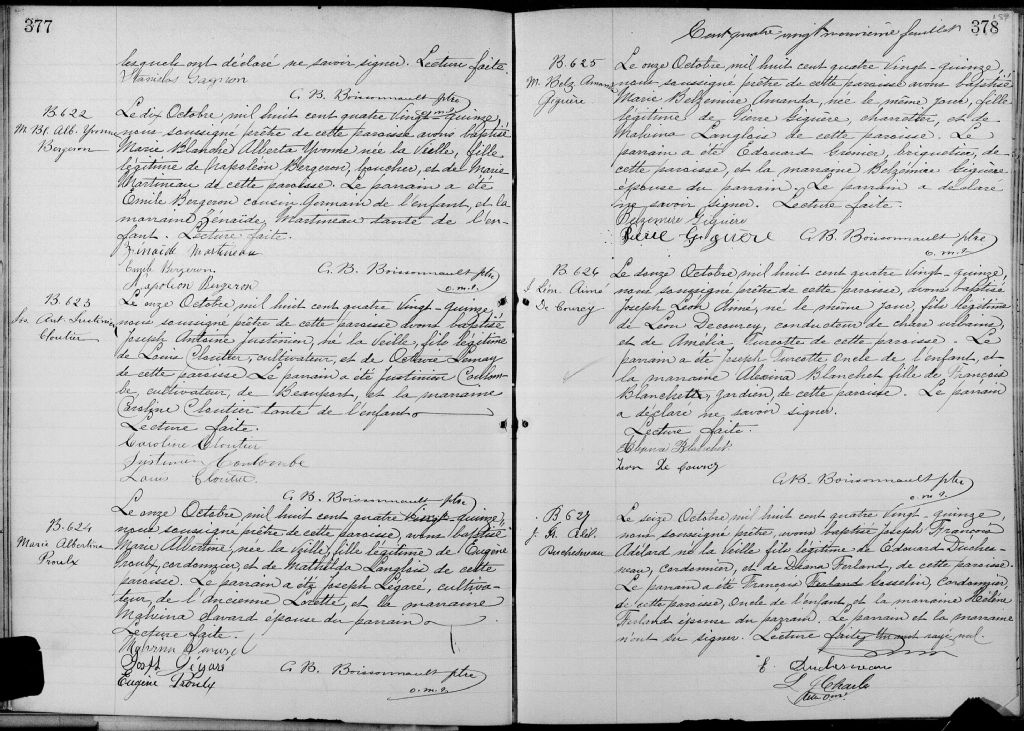 377
lesquels ont déclaré ne savoir signer. Lecture faite.
Stanislas Gagnon
C. B. Boissonnault ptre
o.m.i.
B. 622
M. Bl. Alb. Yvonne
Bergeron
Le dix Octobre, mil huit cent quatre vingt-quinze,
nous soussigné prêtre de cette paroisse avons baptisé
Marie Blanche Alberta Yvonne née la Veille, fille
légitime de Napoléon Bergeron, boucher, et de Marie
Martineau de cette paroisse. Le parrain a été
Émile Bergeron cousin Germain de l'enfant, et la
marraine Zénaïde Martineau tante de l'en-
fant. Lecture faite.
Zénaide Martineau
Emile Bergeron
Napoleon Bergeron
C. B. Boissonnault ptre
o.m.i.
B. 623
Jos. Ant. Justinien
Cloutier
Le onze Octobre, mil huit cent quatre vingt-quinze,
nous soussigné prêtre de cette paroisse avons baptisé
Joseph Antoine Justinien, né la Veille, fils légitime
de Louis Cloutier, cultivateur, et de Lemay
de cette paroisse Le parrain a été Justinien Coulom-
be cultivateur, de Beauport, et la marraine
Caroline Cloutier tante de l'enfant
Lecture faite.
Caroline Cloutier
Justinien Coulombe
Louis Cloutier
C. B. Boissonnault ptre
o.m.i.
B. 624
Marie Albertine
Proulx
Le onze Octobre, mil huit cent quatre vingt-quinze,
nous soussigné prêtre de cette paroisse, avons baptisé
Marie Albertine, née la Veille, fille légitime de Eugène
Proulx, cordonnier, et de Mathilda Langlois de cette
paroisse. Le parrain a été Joseph Légaré, cultiva-
teur, de l'Ancienne Lorette, et la marraine
Malvina Savard épouse du parrain
Lecture faite.
Joseph Légaré
Eugène Proulx
C. B. Boissonnault ptre
o.m.i.
Cent quatre vingt neuvième feuillet
378
189
B. 625
M. Belz. Amanda
Giguère
Le onze Octobre, mil huit cent quatre Vingt-quinze,
nous soussigné prêtre de cette paroisse avons baptisé
Marie Belzémire Amanda, née le même jour, fille
légitime de Pierre Giguère, charretier, et de
Malvina Langlois de cette paroisse. Le
parrain a été Édouard Grenier, briquetier, de
cette paroisse, et la marraine Belzémire Giguère
épouse du parrain. Le parrain a déclaré
ne savoir signer. Lecture faite.
Belzemire Giguère
Pierre Giguere
C. B. Boissonnault ptre
o.m.i.
B. 626
J. Léon Aimé
De Courcy
Le onze Octobre, mil huit cent quatre vingt-quinze,
nous soussigné prêtre de cette paroisse, avons baptisé
Joseph Léon Aimé, né le même jour, fils légitime
de Léon Decourcy, conducteur de chars urbains,
et de Amélia Turcotte de cette paroisse. Le
parrain a été Joseph Turcotte oncle de l'enfant, et
la marraine Alexina Blanchet fille de François
Blanchette, gardien, de cette paroisse. Le parrain
a déclaré ne savoir signer.
Lecture faite.
Alexina Blanchet
Léon De Courcy
C. B. Boissonnault ptre
o.m.i.
B. 627
J. Fr. Adél.
Duchesneau
Le seize Octobre, mil huit cent quatre Vingt-quinze,
nous soussigné prêtre, avons baptisé Joseph François
Adélard né la Veille fils légitime de Édouard Duches-
neau, cordonnier, et de Diana Ferland, de cette paroisse.
Le parrain a été François Ferland Gosselin, cordonnier
de cette paroisse, Oncle de l'enfant et la marraine Hélène
Ferland épouse du parrain. Le parrain et la marraine
n'ont su signer. Lecture faite, Un mot rayé nul.
E. Duchesneau